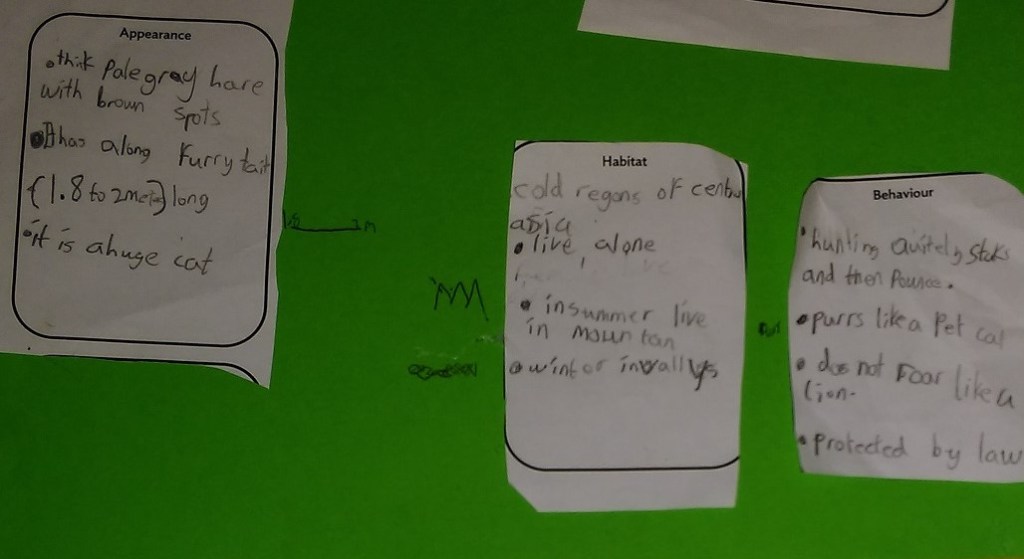 Appearance
• think Pale gray hare
with brown spots
• It has along Furry tail
(1.8 to 2meter) long
• it is ahuge cat
Habitat
cold regons of centru
asia
• live alone
• insummer live
in mountan
• wintor invallys
Behaviour
• hunting quitely stoks
and then Pounce.
• purrs like a Pet cat
• does not roar like a
lion.
• protected by law